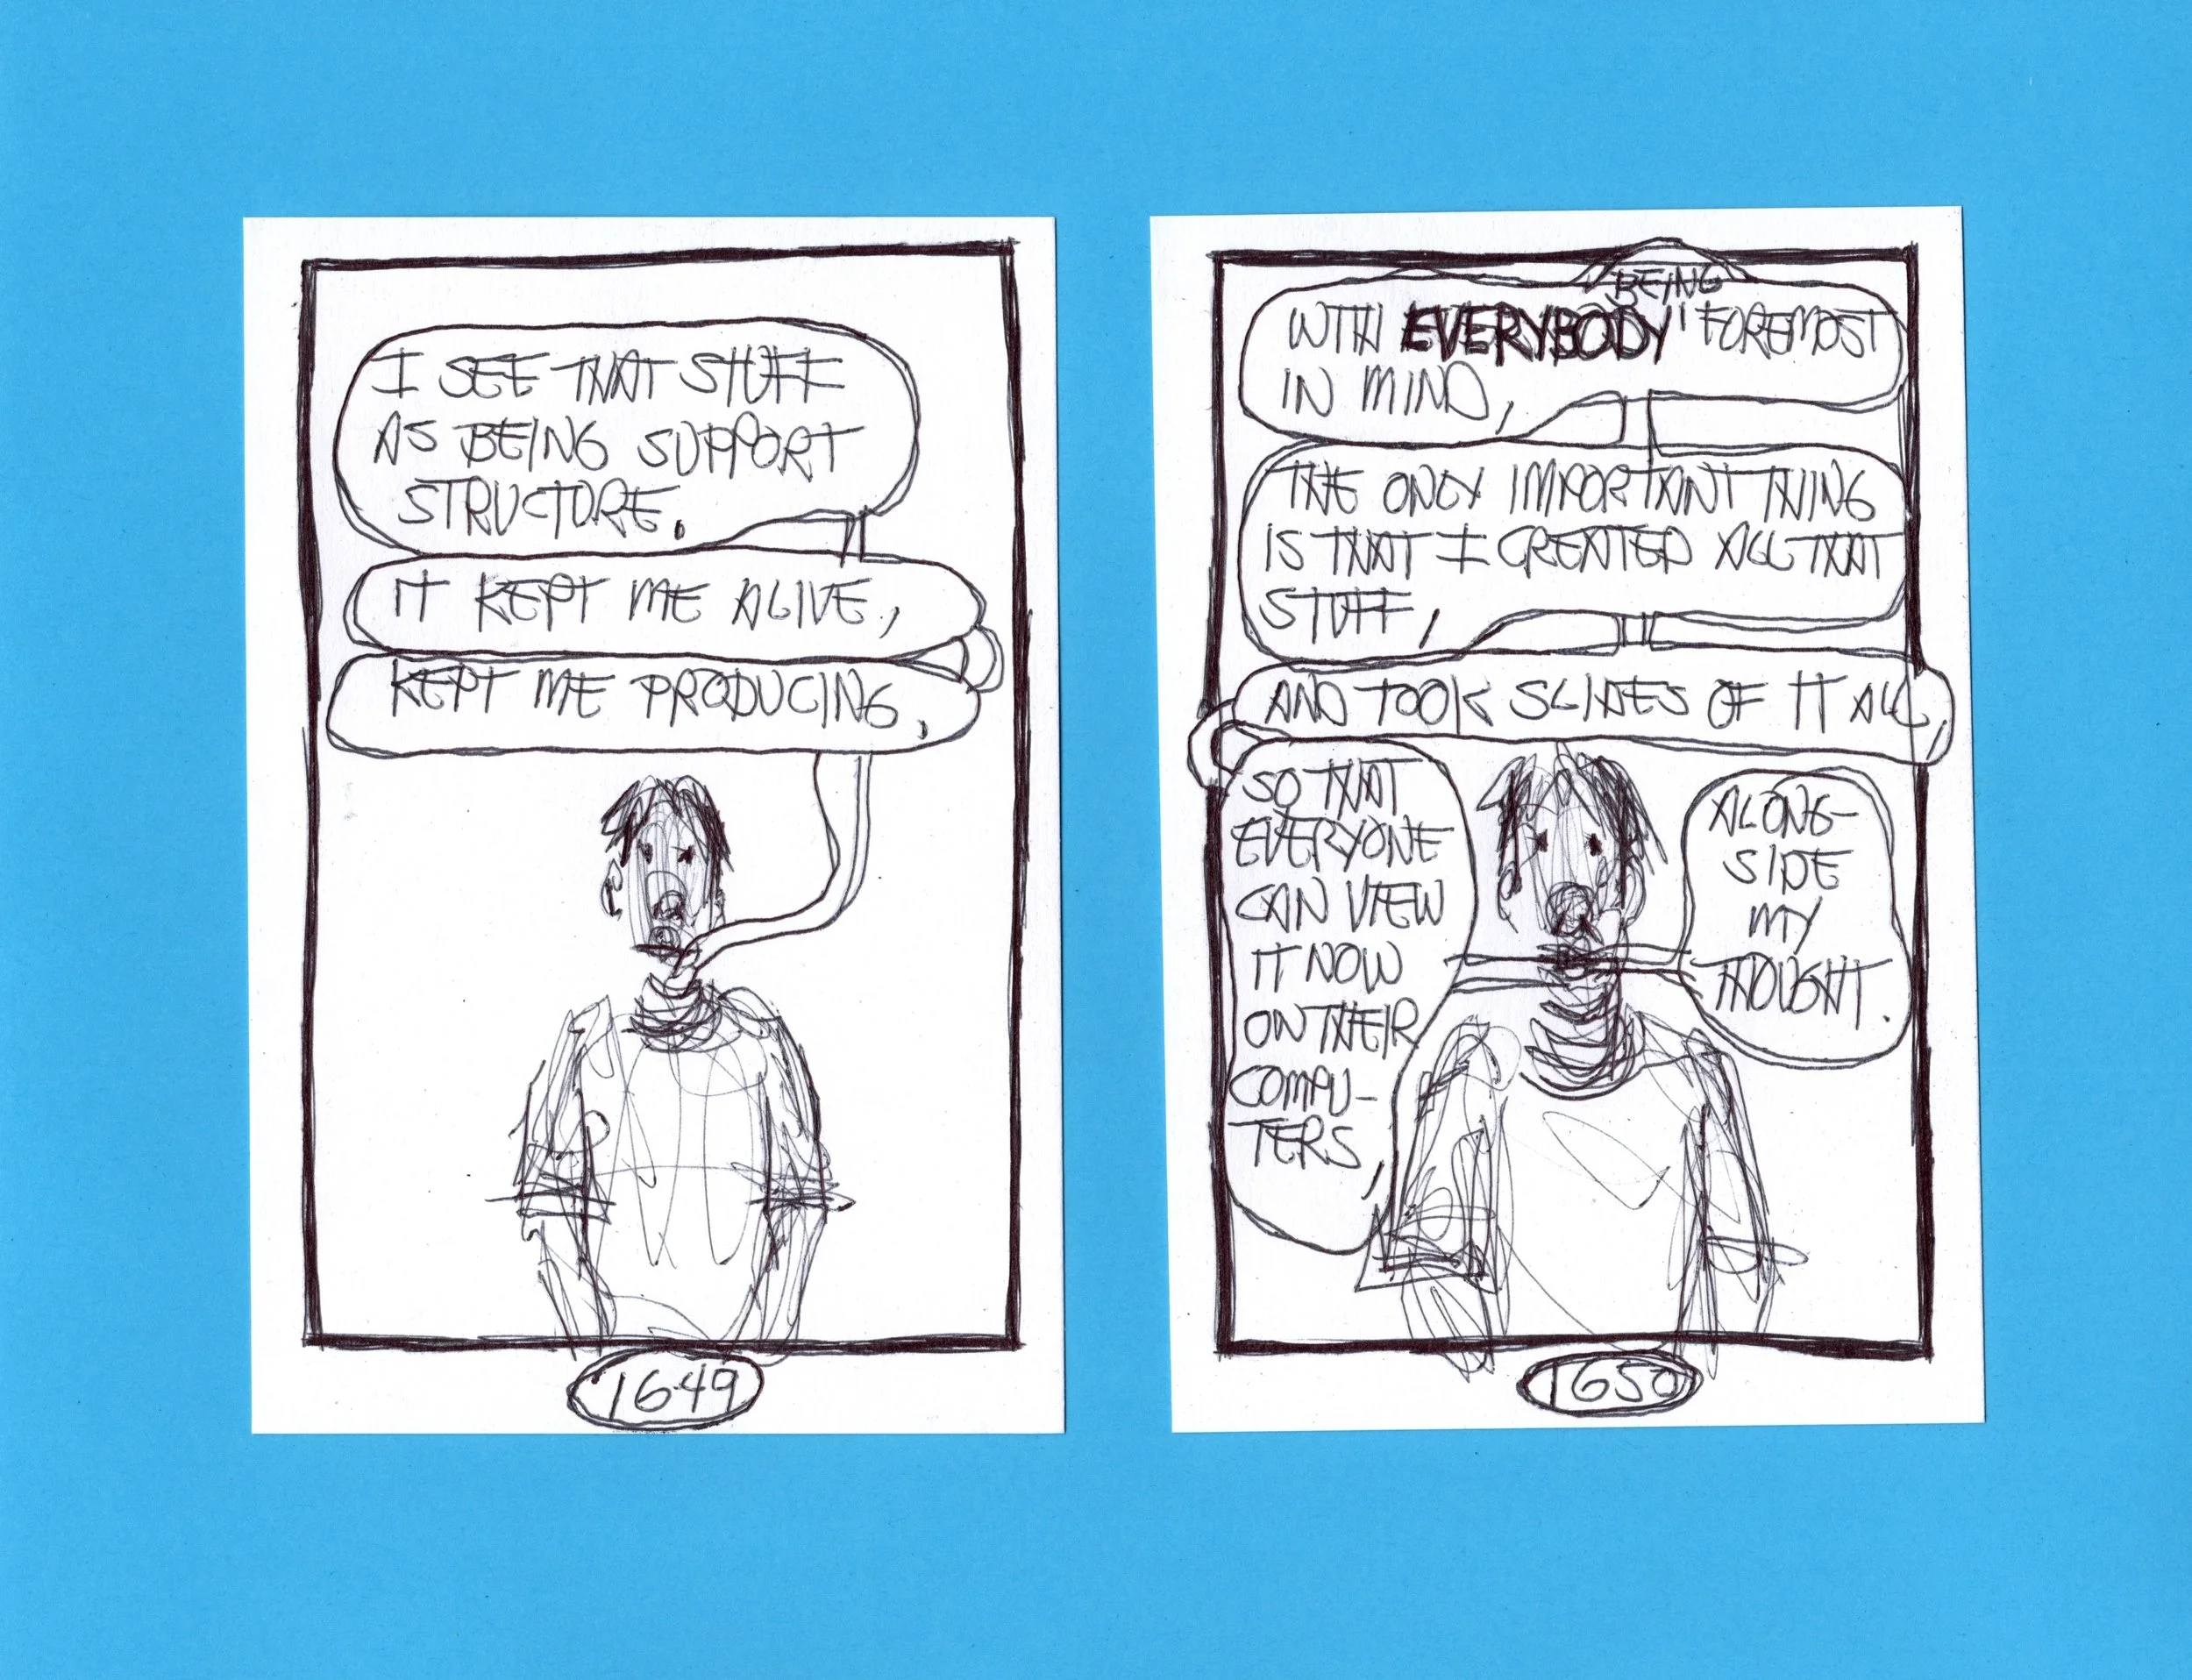 I SEE THAT STUFF
AS BEING SUPPORT
STRUCTURE.
IT KEPT ME ALIVE,
KEPT ME PRODUCING,
1649
BEING
WITH EVERYBODY FOREMOST
IN MIND,
THE ONLY IMPORTANT THING
IS THAT I CREATED ALL THAT
STUFF,
AND TOOK SLIDES OF IT ALL,
SO THAT
EVERYONE
CAN VIEW
IT NOW
ON THEIR
COMPU-
TERS,
ALONG-
SIDE
MY
THOUGHT.
1650